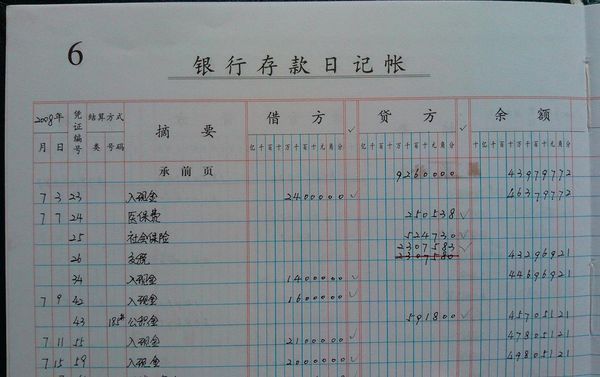 6
银行存款日记帐
2008年 凭证编号 结算方式 摘要 借方 ✓ 贷方 ✓ 余额
月 日 类 号码 亿千百十万千百十元角分 亿千百十万千百十元角分 亿千百十万千百十元角分
承前页 9260000 43979772
7 3 23 入现金 2400000 ✓ 46379772
7 7 24 医保费 250538 ✓
25 社会保险 524730 ✓
2307583 ✓
26 支税 2307580 43296921
34 入现金 1400000 ✓ 44696921
7 9 42 入现金 1600000 ✓
43 公积金 591800 ✓ 45705121
7 11 55 入现金 2100000 ✓ 47805121
7 15 59 入现金 2000000 ✓ 49805121